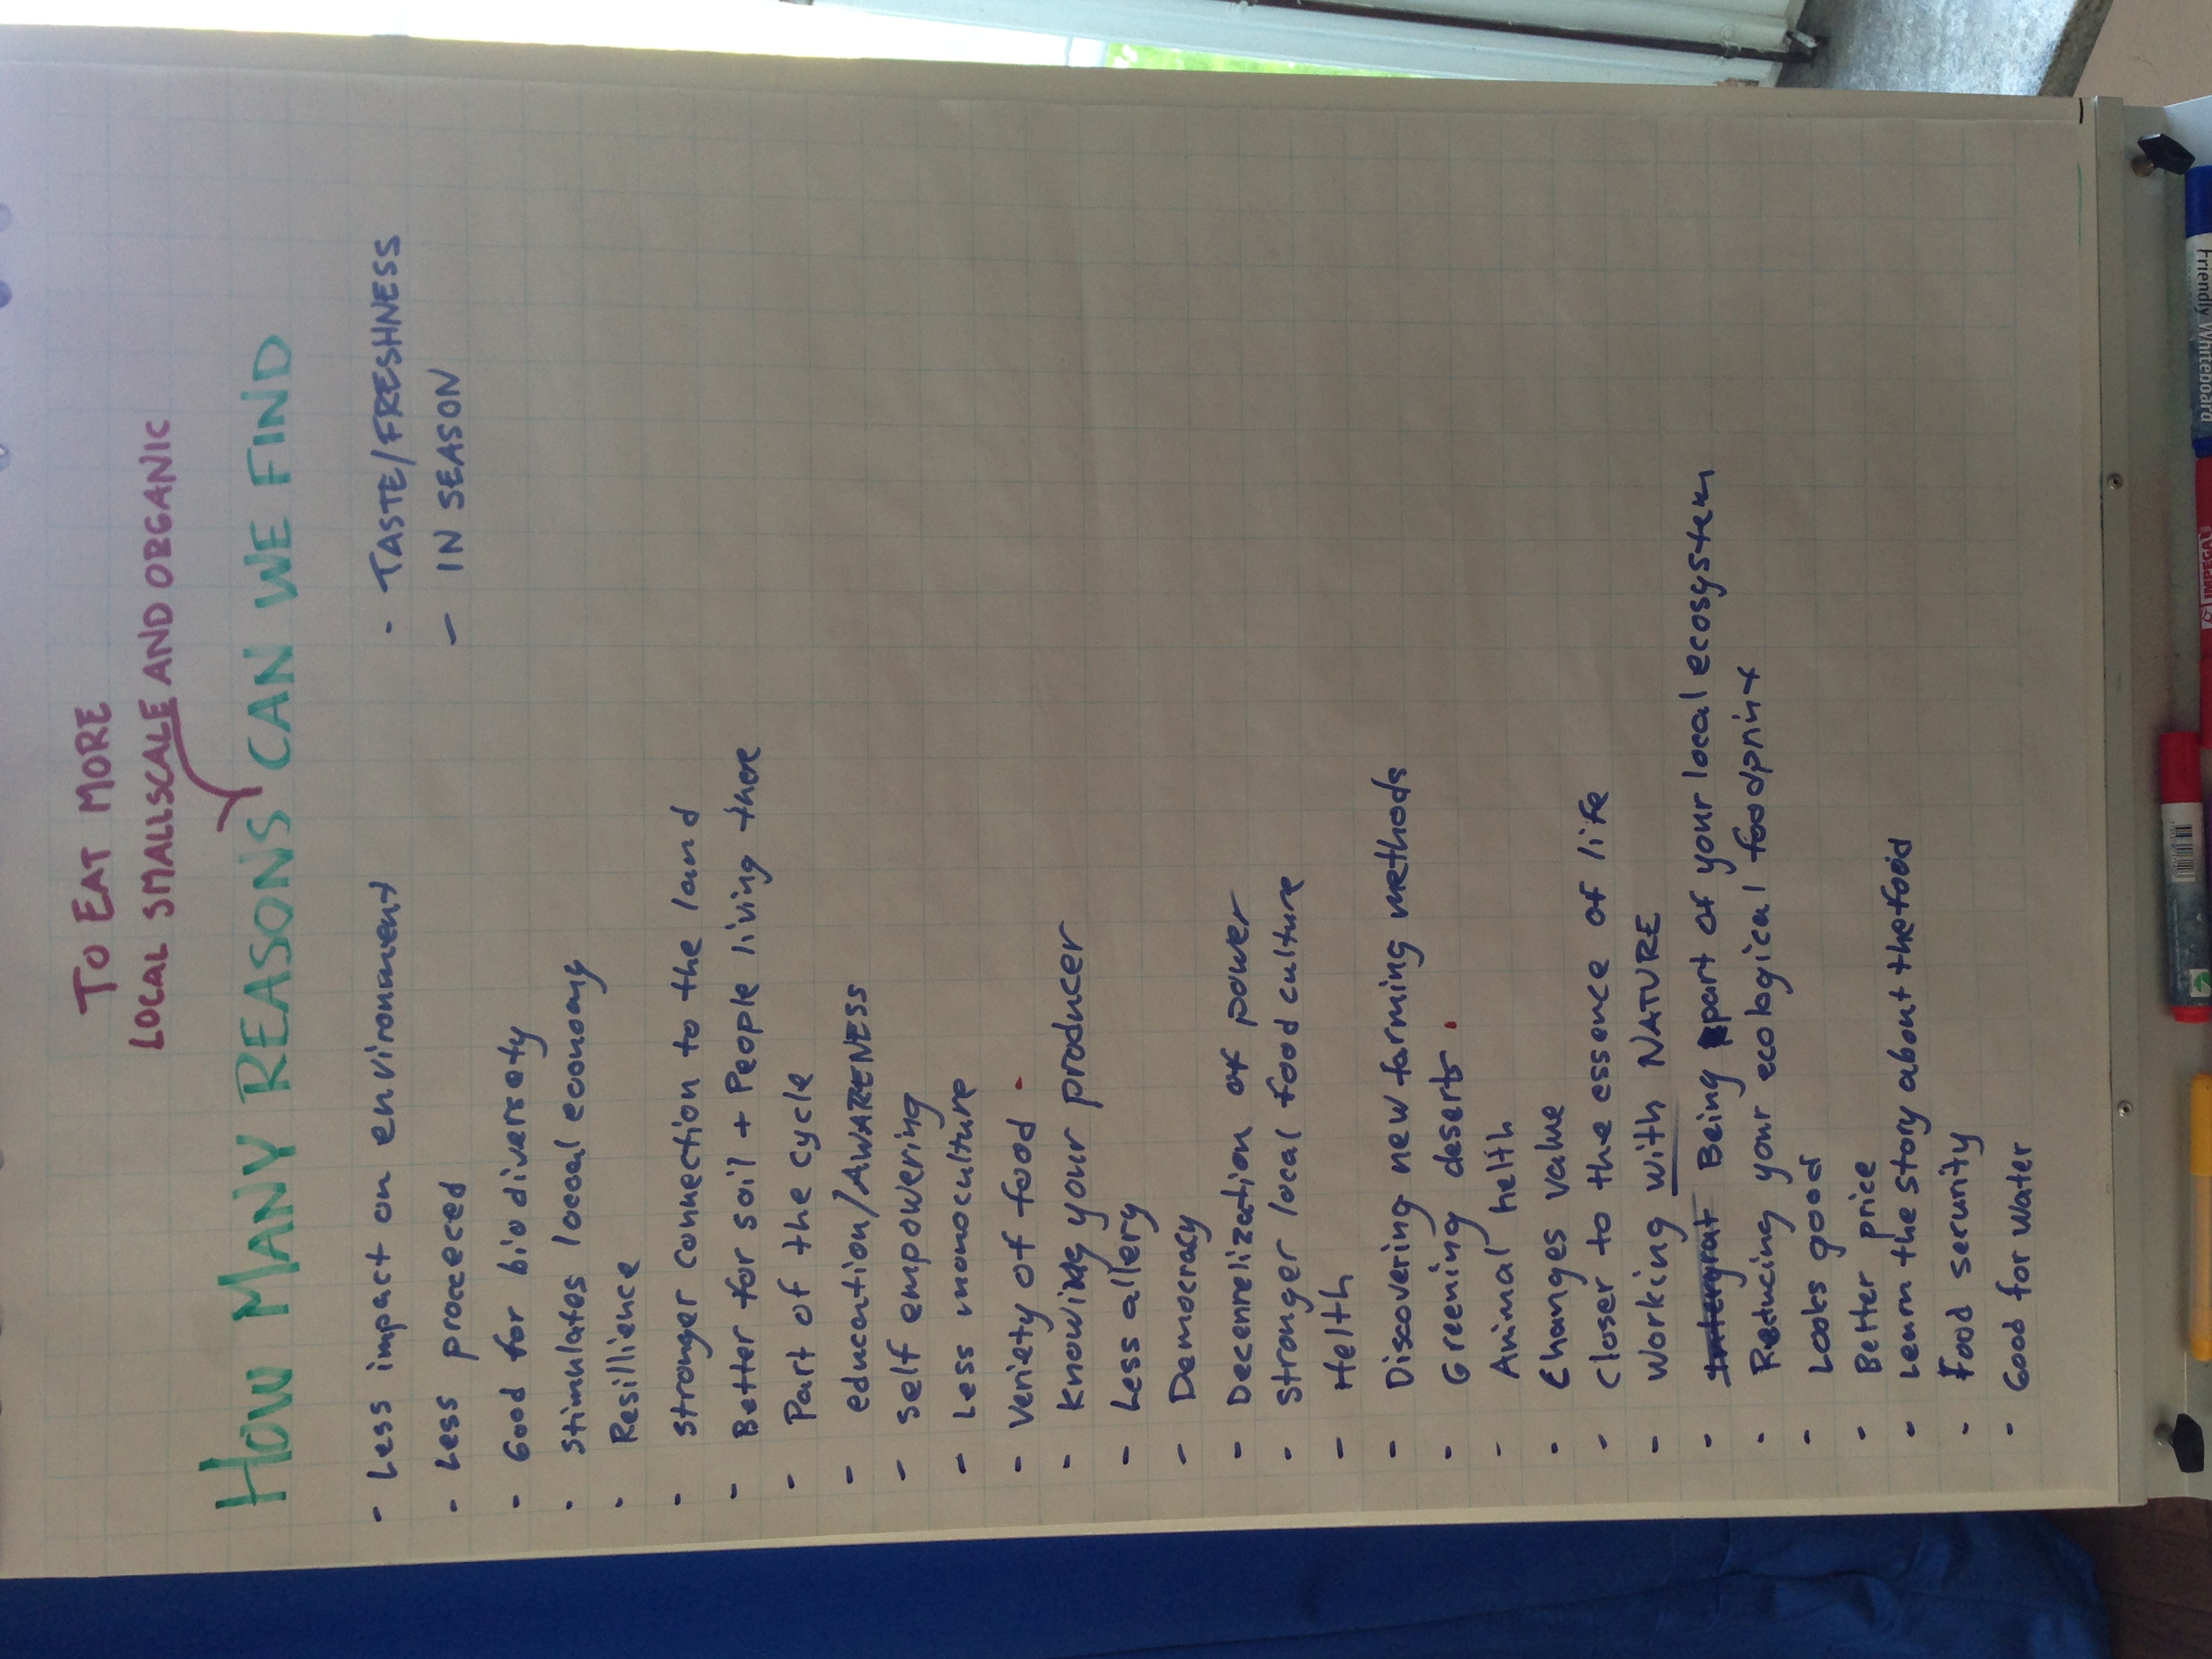 TO EAT MORE
LOCAL SMALLSCALE AND ORGANIC
HOW MANY REASONS CAN WE FIND
- Less impact on environment
- Less proceeced
- Good for bio diversety
- Stimulates locoal economy
- Resillience
- Stronger connection to the land
- Better for soil + People living there
- Part of the cycle
- education/AWARENESS
- Self empowering
- Less monoculture
- Veriety of food.
- Knowing your producer
- Less allery
- Democracy
- Decenrelization of power
- Stronger local food culture
- Helth
- Discovering new farming methods
- Greening deserts.
- Animal helth
- Changes value
- Closer to the essence of life
- Working with NATURE
- Being part of your local ecosystem
- Reducing your ecological foodprint
- Looks good
- Better price
- Learn the story about the food
- Food serunity
- Good for water
- TASTE/FRESHNESS
- IN SEASON
Friendly Whiteboard